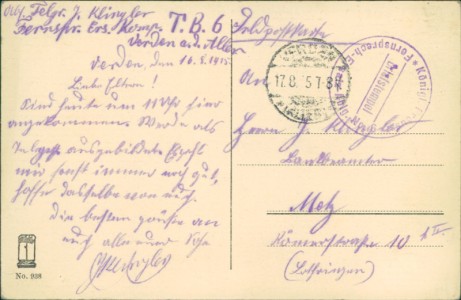 Abs. Telgr. J. Klingler
Fernspr. Ers. Komp. T. B. 6
Verden a. d. Aller
Verden, den 16.8.1915
Liebe Eltern!
Sind heute um 11 Uhr hier
angekommen. Werde als
ausgebildet. Es geht
mir sonst immer noch gut,
hoffe dasselbe von euch.
Die besten Grüße an
euch alle euer Sohn
No. 938
Feldpostkarte
VERDEN
17.8.15.7-8
(ALLER)
Königl.
Fernsprech-
Briefstempel
An
Herrn J. Klingler
Bankbeamter
Metz
Römerstraße 10
(Lothringen)